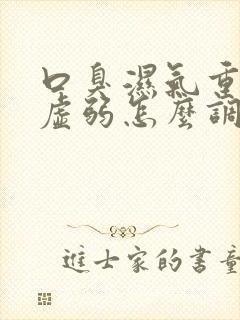 口臭濕氣重
虛弱怎麼調
進士家的書童